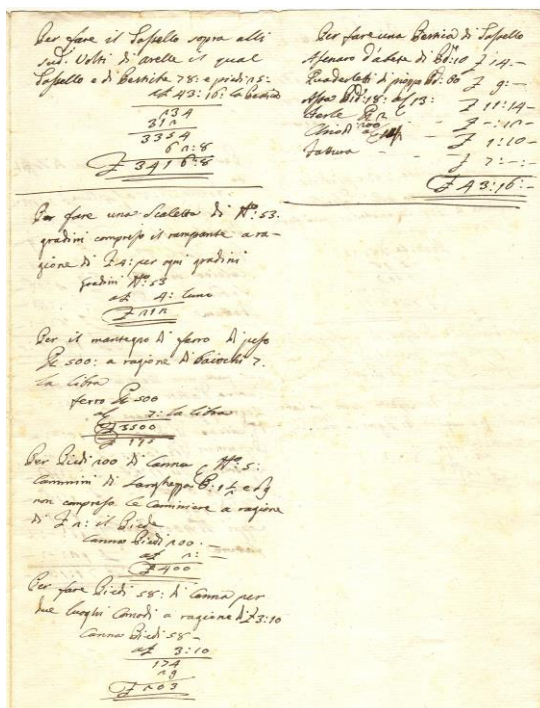 Per fare il Tassello sopra alli
sud.i Volti di arelle il qual
Tassello e di Pertiche 78: e piedi 15:
a £ 43:16: la Pertica
234
312
3354
62:8
£ 3416:8
Per fare una Scaletta di N.o: 53.
gradini compreso il rampante a ra-
gione di £ 4: per ogni gradini
gradini N.o: 53
a £ 4: l'uno
£ 212
Per il mantegno di ferro di peso
500: a ragione di baiochi 7.
la libra
ferro 500
a 7: la libra
£ 3500
£ 175
Per Piedi 200 di Canna N.o: 5:
Cammini di Larghezza
non compreso le Caminiere a ragione
di £ 2: il Piede
Canna Piedi 200. –
a £ 2: –
£ 400
Per fare Piedi 58: di Canna per
due luoghi Comodi a ragione di £ 3:10
Canna Piedi 58 –
a £ 3:10
174
29
£ 203
Per fare una Pertica di Tassello
d'abete di £ 14: –
di £ 9: –
18: 13: £ 11:14 –
£ –:12 –
Chiodi £ 1:10 –
fattura – £ 7: –: –
£ 43:16: –